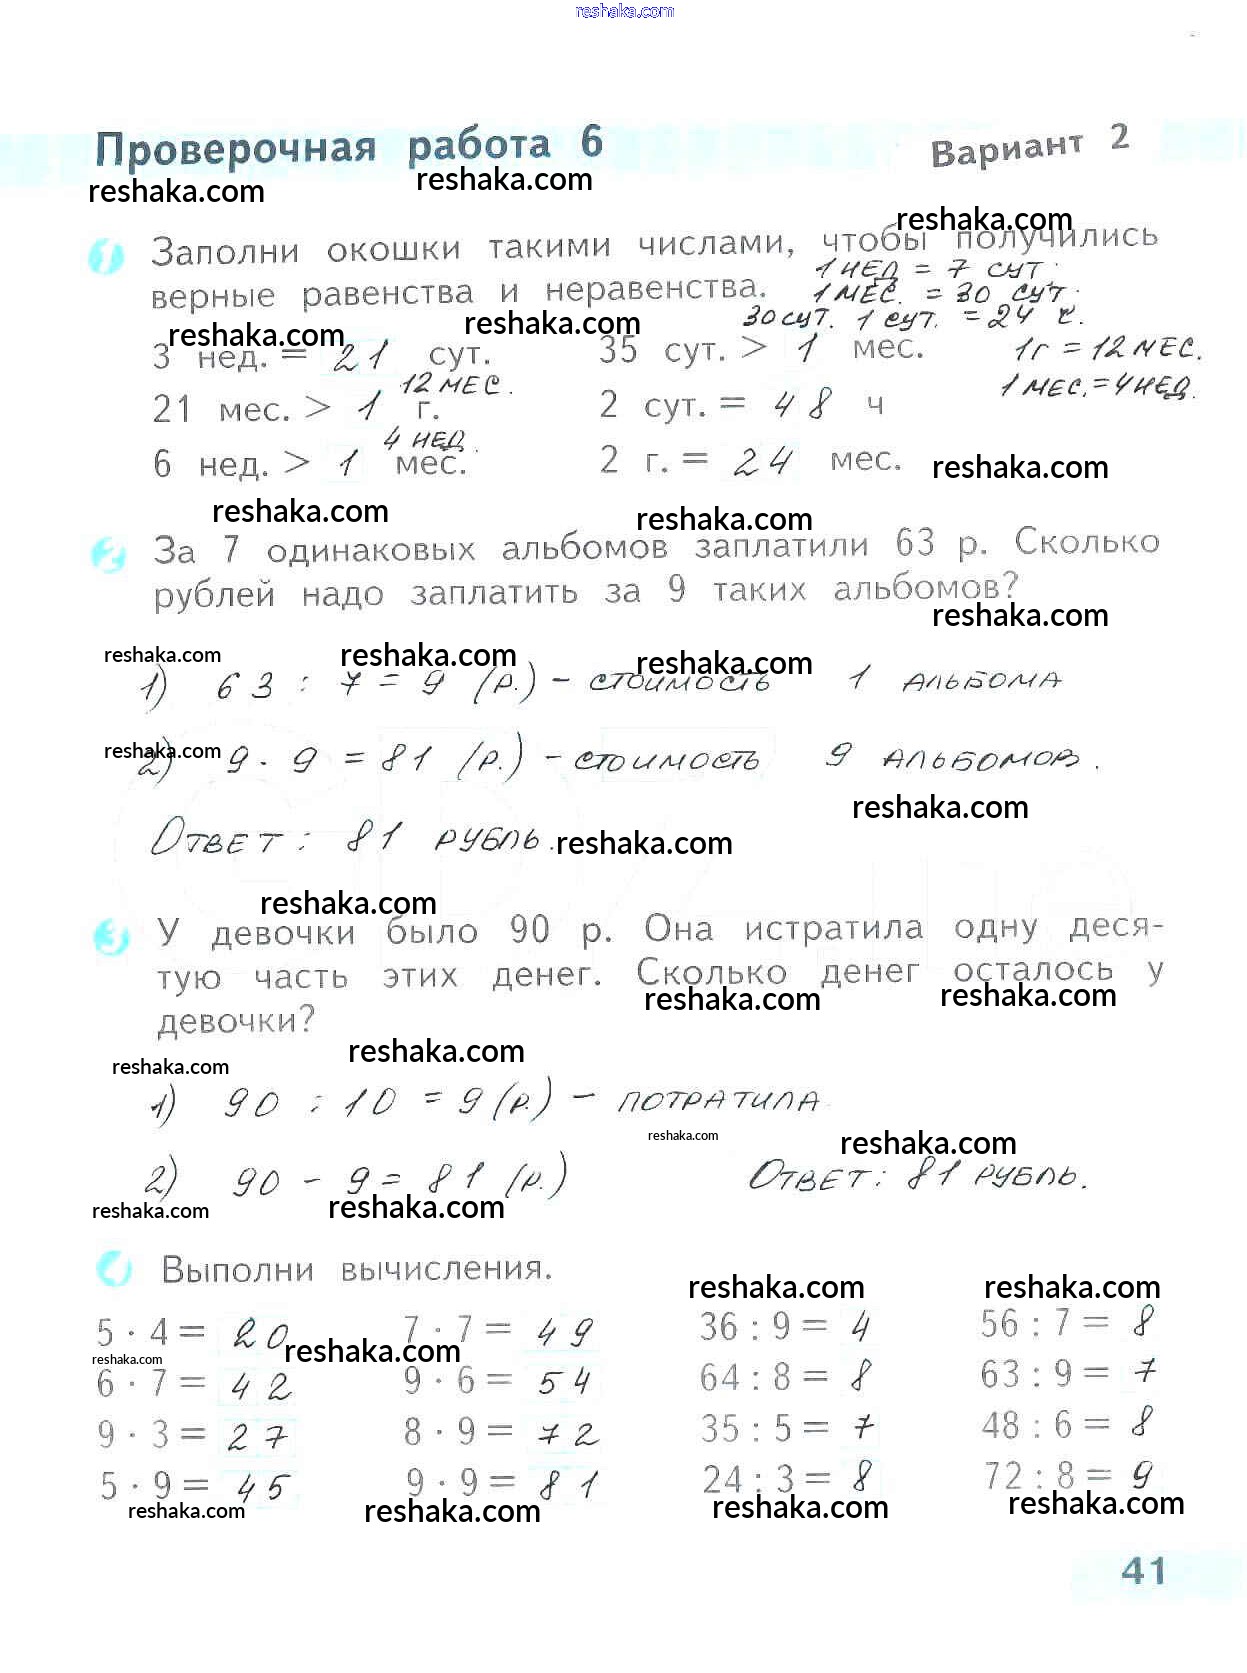 reshaka.com
Проверочная работа 6 Вариант 2
reshaka.com reshaka.com
reshaka.com
1 Заполни окошки такими числами, чтобы получились
1 НЕД = 7 СУТ.
верные равенства и неравенства. 1 МЕС. = 30 СУТ.
reshaka.com reshaka.com 30 СУТ. 1 СУТ. = 24 Ч.
3 нед. = 21 сут. 35 сут. > 1 мес. 1 г = 12 МЕС.
12 МЕС. 1 МЕС. = 4 НЕД.
21 мес. > 1 г. 2 сут. = 48 ч
4 НЕД.
6 нед. > 1 мес. 2 г. = 24 мес. reshaka.com
reshaka.com reshaka.com
2 За 7 одинаковых альбомов заплатили 63 р. Сколько
рублей надо заплатить за 9 таких альбомов?
reshaka.com
reshaka.com reshaka.com reshaka.com
1) 63 : 7 = 9 (р.) – СТОИМОСТЬ 1 АЛЬБОМА
reshaka.com
2) 9 · 9 = 81 (р.) – СТОИМОСТЬ 9 АЛЬБОМОВ.
reshaka.com
ОТВЕТ : 81 РУБЛЬ. reshaka.com
reshaka.com
3 У девочки было 90 р. Она истратила одну деся-
тую часть этих денег. Сколько денег осталось у
reshaka.com reshaka.com
девочки?
reshaka.com reshaka.com
1) 90 : 10 = 9 (р.) – ПОТРАТИЛА
reshaka.com reshaka.com
2) 90 – 9 = 81 (р.) ОТВЕТ : 81 РУБЛЬ.
reshaka.com reshaka.com
4 Выполни вычисления.
reshaka.com reshaka.com
5 · 4 = 20 7 · 7 = 49 36 : 9 = 4 56 : 7 = 8
reshaka.com reshaka.com
6 · 7 = 42 9 · 6 = 54 64 : 8 = 8 63 : 9 = 7
9 · 3 = 27 8 · 9 = 72 35 : 5 = 7 48 : 6 = 8
5 · 9 = 45 9 · 9 = 81 24 : 3 = 8 72 : 8 = 9
reshaka.com reshaka.com reshaka.com reshaka.com
41